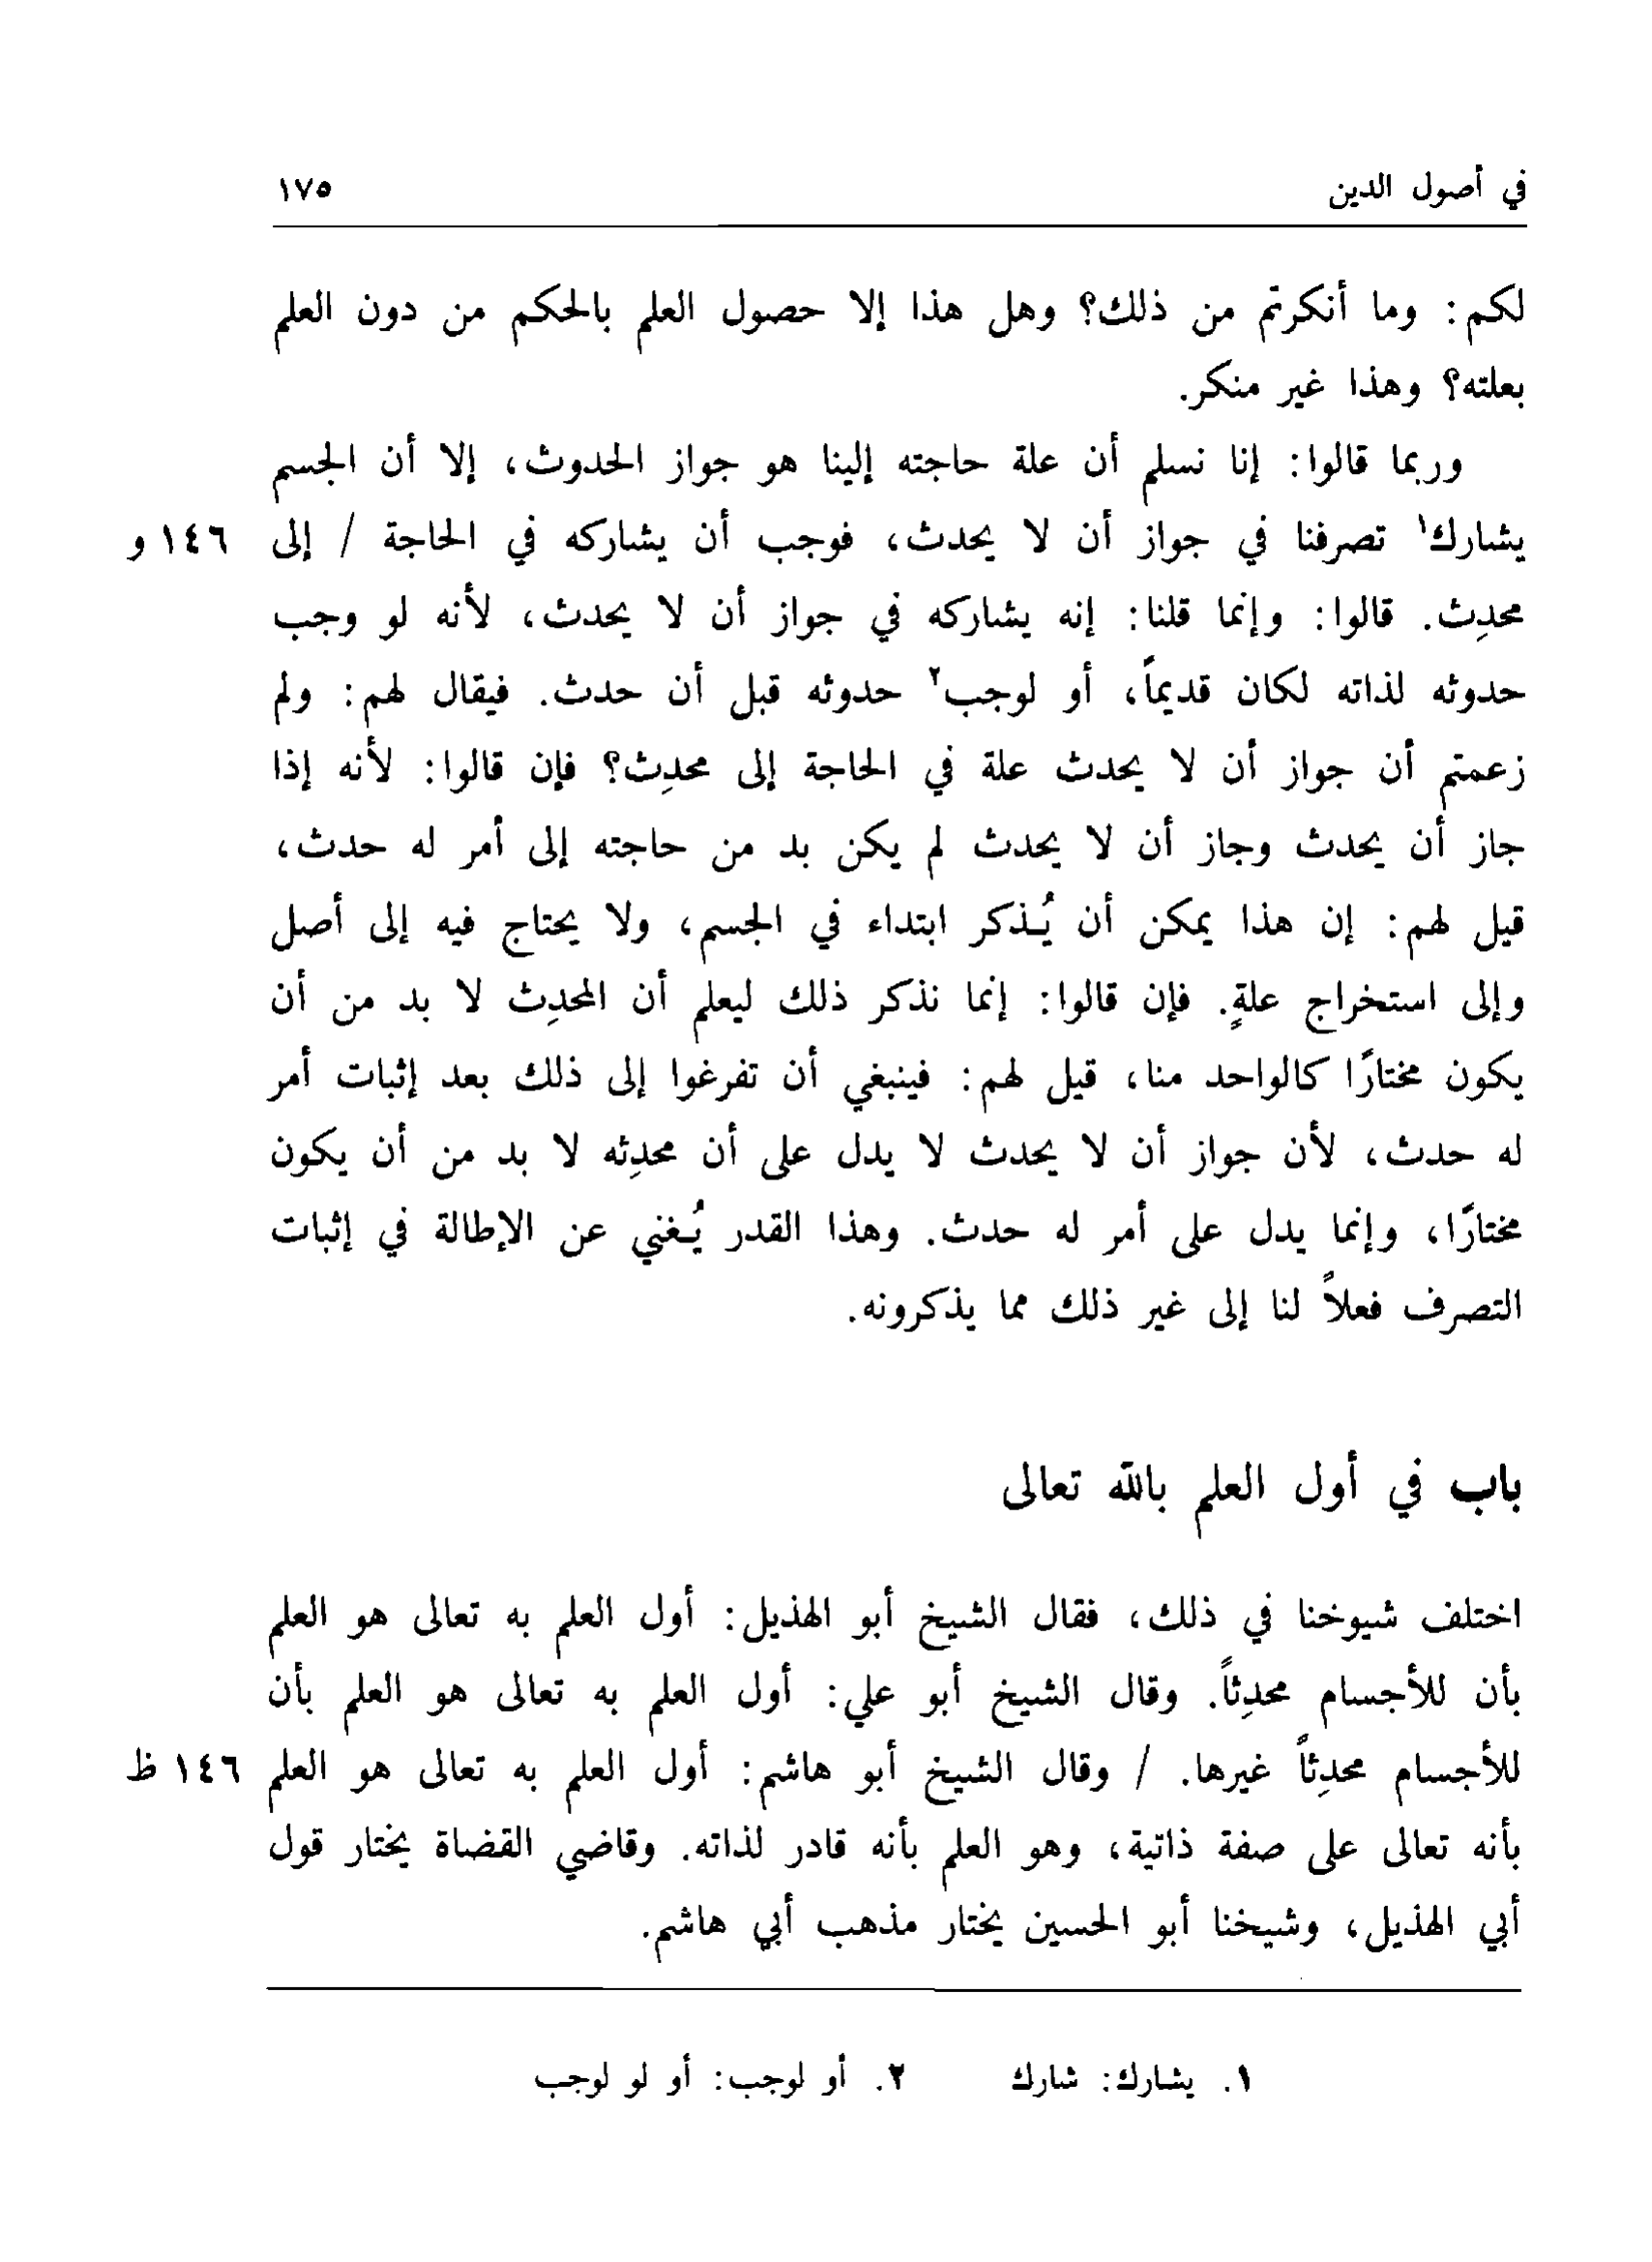 في أصول الدين ١٧٥
لكم: وما أنكرتم من ذلك؟ وهل هذا إلا حصول العلم بالحكم من دون العلم
بعلته؟ وهذا غير منكر.
وربما قالوا: إنا نسلم أن علة حاجته إلينا هو جواز الحدوث، إلا أن الجسم
يشارك١ تصرفنا في جواز أن لا يحدث، فوجب أن يشاركه في الحاجة / إلى ١٤٦ و
محدِث. قالوا: وإنما قلنا: إنه يشاركه في جواز أن لا يحدث، لأنه لو وجب
حدوثه لذاته لكان قديماً، أو لوجب٢ حدوثه قبل أن حدث. فيقال لهم: ولم
زعمتم أن جواز أن لا يحدث علة في الحاجة إلى محدِث؟ فإن قالوا: لأنه إذا
جاز أن يحدث وجاز أن لا يحدث لم يكن بد من حاجته إلى أمر له حدث،
قيل لهم: إن هذا يمكن أن يُذكر ابتداء في الجسم، ولا يحتاج فيه إلى أصل
وإلى استخراج علةٍ. فإن قالوا: إنما نذكر ذلك ليعلم أن المحدِث لا بد من أن
يكون مختارًا كالواحد منا، قيل لهم: فينبغي أن تفرغوا إلى ذلك بعد إثبات أمر
له حدث، لأن جواز أن لا يحدث لا يدل على أن محدِثه لا بد من أن يكون
مختارًا، وإنما يدل على أمر له حدث. وهذا القدر يُغني عن الإطالة في إثبات
التصرف فعلاً لنا إلى غير ذلك مما يذكرونه.
باب في أول العلم بالله تعالى
اختلف شيوخنا في ذلك، فقال الشيخ أبو الهذيل: أول العلم به تعالى هو العلم
بأن للأجسام محدِثاً. وقال الشيخ أبو علي: أول العلم به تعالى هو العلم بأن
للأجسام محدِثاً غيرها. / وقال الشيخ أبو هاشم: أول العلم به تعالى هو العلم ١٤٦ ظ
بأنه تعالى على صفة ذاتية، وهو العلم بأنه قادر لذاته. وقاضي القضاة يختار قول
أبي الهذيل، وشيخنا أبو الحسين يختار مذهب أبي هاشم.
١. يشارك: شارك ٢. أو لوجب: أو لو لوجب